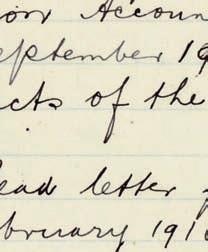 Accoun
September 19
acts of the
ead letter
bruary 191